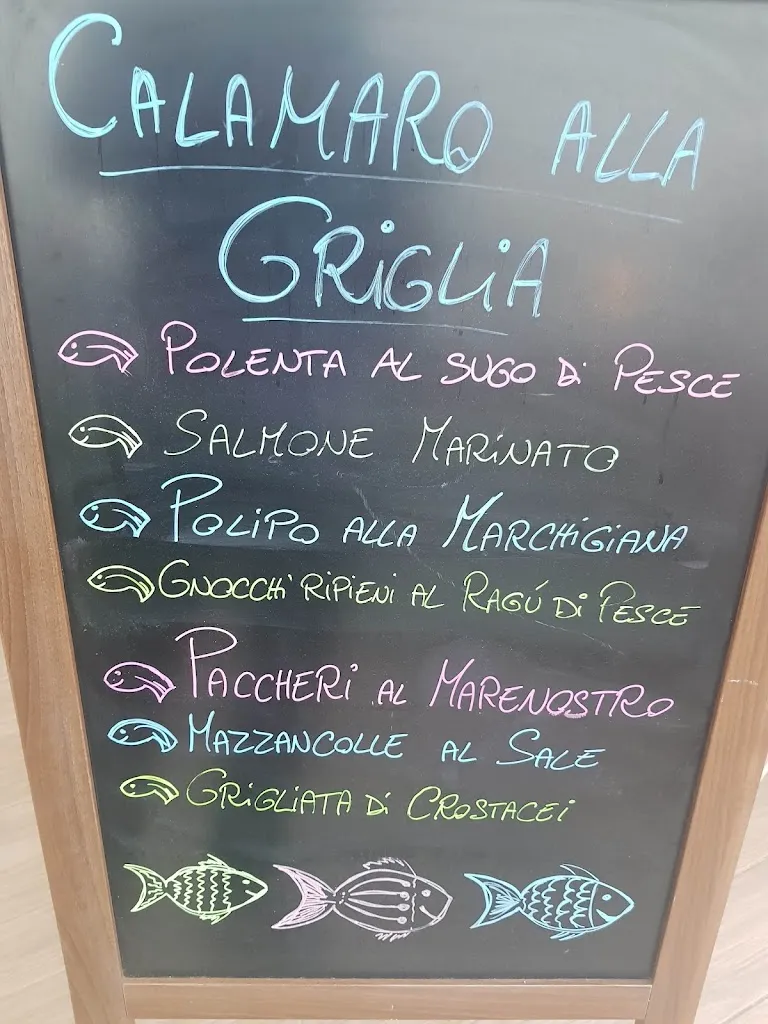 CALAMARO ALLA
GRIGLIA
POLENTA AL SUGO Di PESCE
SALMONE MARiNATO
POLiPO ALLA MARCHiGiANA
GNOCCHi RiPiENi AL RAGÚ Di PESCE
PACCHERi AL MARENOSTRO
MAZZANCOLLE AL SALE
GRiGLiATA Di CROSTACEi